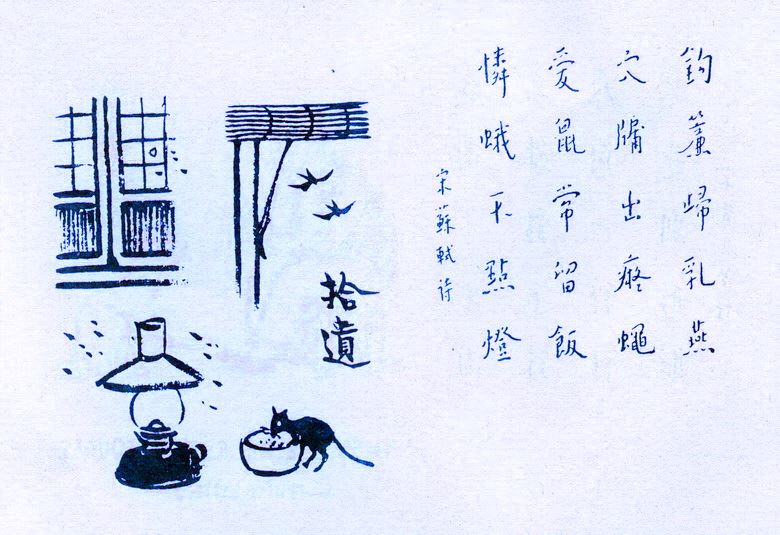 鉤簾歸乳燕
穴牖出癡蠅
愛鼠常留飯
憐蛾不點燈
宋蘇軾诗
拾遺